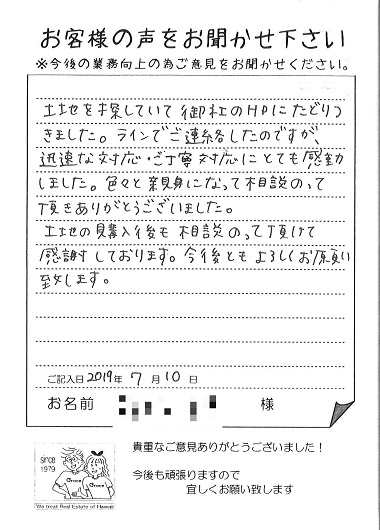 お客様の声をお聞かせ下さい
※今後の業務向上の為ご意見をお聞かせください。
土地を探していて御社のHPにたどりつ
きました。ラインでご連絡したのですが、
迅速な対応・ご丁寧対応にとても感動
しました。色々と親身になって相談のって
頂きありがとうございました。
土地の購入後も相談のって頂けて
感謝しております。今後ともよろしくお願い
致します。
ご記入日 2019年 7月10日
お名前 様
since
1979
We Great Real Estate of Hawaii
貴重なご意見ありがとうございました!
今後も頑張りますので
宜しくお願い致します